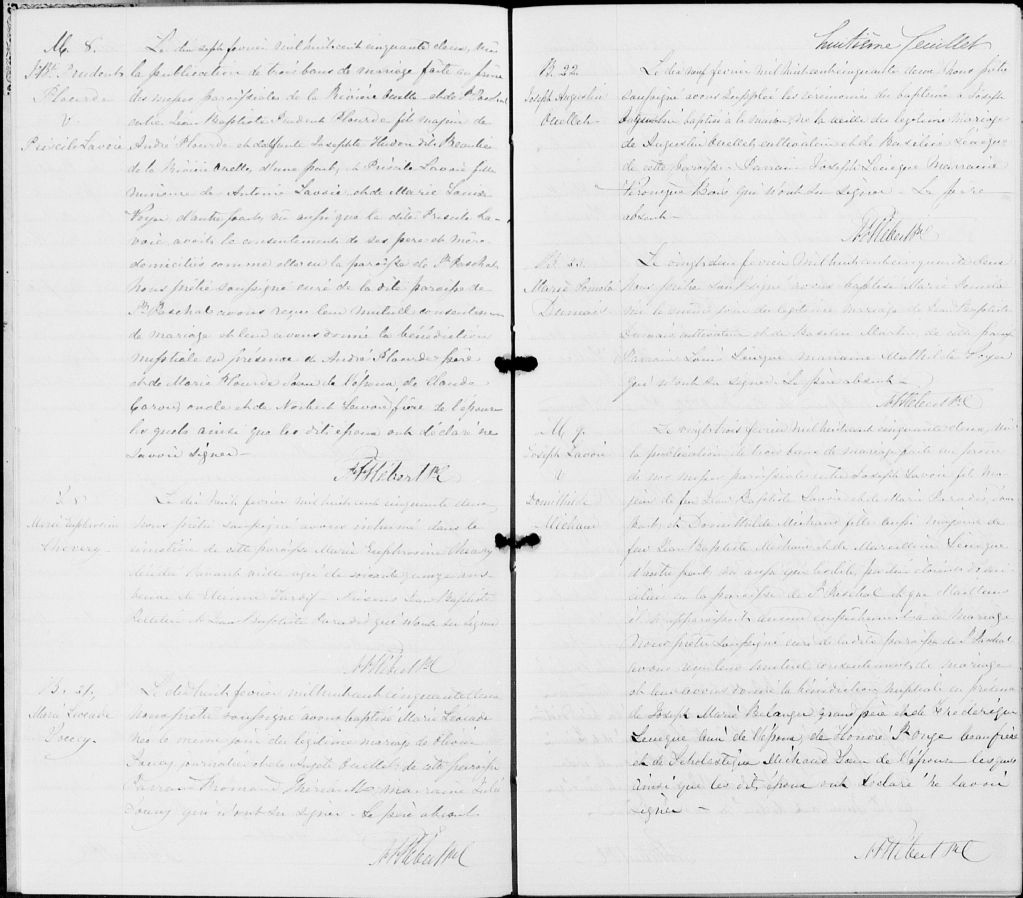 M. 8.
J. Bt. Prudent
Plourde
V
Priscile Lavoie
Le dix sept fevrier mil huit cent cinquante deux, vu
la publication de trois bans de mariage faite au prône
des messes paroissiales de la Rivière Ouelle et de St Paschal
entre Jean Baptiste Prudent Plourde fils majeur de
André Plourde et de défunte Josephte Hudon dit Beaulieu
de la Rivière Ouelle d'une part, et Priscile Lavoie fille
mineure de Antoine Lavoie et de Marie Louise
Voyer d'autre part, vu aussi que la dite Priscile La-
voie avoit le consentement de ses pere et mère
domiciliés comme elle en la paroisse de St Paschal
Nous prêtre soussigné curé de la dite paroisse de
St Paschal avons reçu leur mutuel consentement
de mariage et leur avons donné la bénédiction
nuptiale en présence de André Plourde père
et de Marie Plourde soeur de l'epoux, de Claude
Caron oncle et de Norbert Lavoie frère de l'épouse
lesquels ainsi que les dits epoux ont déclaré ne
savoir signer —
N. T. Hébert Ptre
Marie Euphrosine
Chevery
Le dix huit fevrier mil huit cent cinquante deux
Nous prêtre soussigné avons inhumé dans le
cimetière de cette paroisse Marie Euphrosine
agée de soixante onze ans
veuve de Etienne Tardif - Présens Jean Baptiste
et Jean Baptiste Paradis qui n'ont su signer
N. T. Hébert Ptre
B. 21.
Marie Leocade
Le dix huit fevrier mil huit cent cinquante deux
nous prêtre soussigné avons baptisé Marie Léocade
née le même jour du légitime mariage de Olivier
journalier et de Angele Ouellet de cette paroisse
Parrain Theriault, marraine
qui n'ont su signer - Le père absent -
N. T. Hébert Ptre
huitième feuillet
B. 22
Joseph Augustin
Ouellet
Le dix neuf fevrier mil huit cent cinquante deux Nous prêtre
soussigné avons suppléé les cérémonies du baptême à Joseph
Augustin baptisé à la maison né la veille du légitime mariage
de Augustin Ouellet cultivateur et de Basilice Lévêque
de cette paroisse - Parrain Joseph Lévêque Marraine
Véronique Bois qui n'ont su signer - Le père
absent -
N. T. Hébert Ptre
B. 23.
Marie
Dumais
Le vingt deux fevrier mil huit cent cinquante deux
Nous prêtre soussigné avons baptisé Marie
née le même jour du légitime mariage de Jean Baptiste
Dumais cultivateur et de Basilice Martin de cette paroisse
Parrain Louis Lévêque marraine Mathilde Voyer
qui n'ont su signer Le père absent -
N. T. Hébert Ptre
M 9.
Joseph Lavoie
V
Domithilde
Michaud
Le vingt trois fevrier mil huit cent cinquante deux, vu
la publication de trois bans de mariage faite au prône
de nos messes paroissiales entre Joseph Lavoie fils ma-
jeur de feu Jean Baptiste Lavoie et de Marie Paradis, d'une
part, et Domithilde Michaud fille aussi majeure de
feu Jean Baptiste Michaud et de Marcelline Lévêque
d'autre part, vu aussi que les dites parties étoient domi-
ciliées en la paroisse de St Paschal et que d'ailleurs
il n'apparoissoit aucun empêchement à ce mariage
Nous prêtre soussigné curé de la dite paroisse de St Paschal
avons reçu leur mutuel consentement de mariage
et leur avons donné la bénédiction nuptiale en présence
de Joseph Marie Belanger grand père et de Frédérique
Lévêque ami de l'epoux, de Honoré St Onge beau frère
et de Scholastique Michaud soeur de l'épouse lesquels
ainsi que les dits époux ont déclaré ne savoir
signer -
N. T. Hébert Ptre